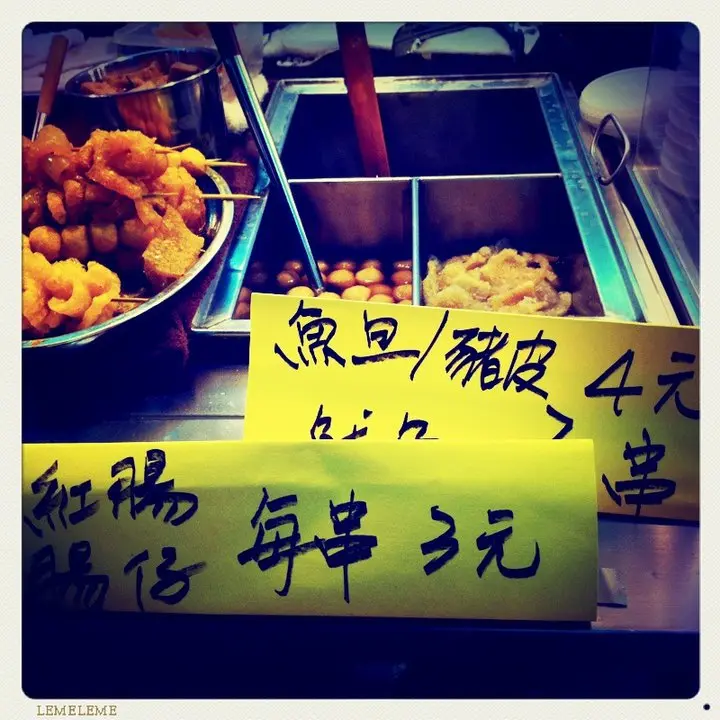 魚旦/豬皮 4元
串
紅腸
腸仔
每串 3元
LEMELEME